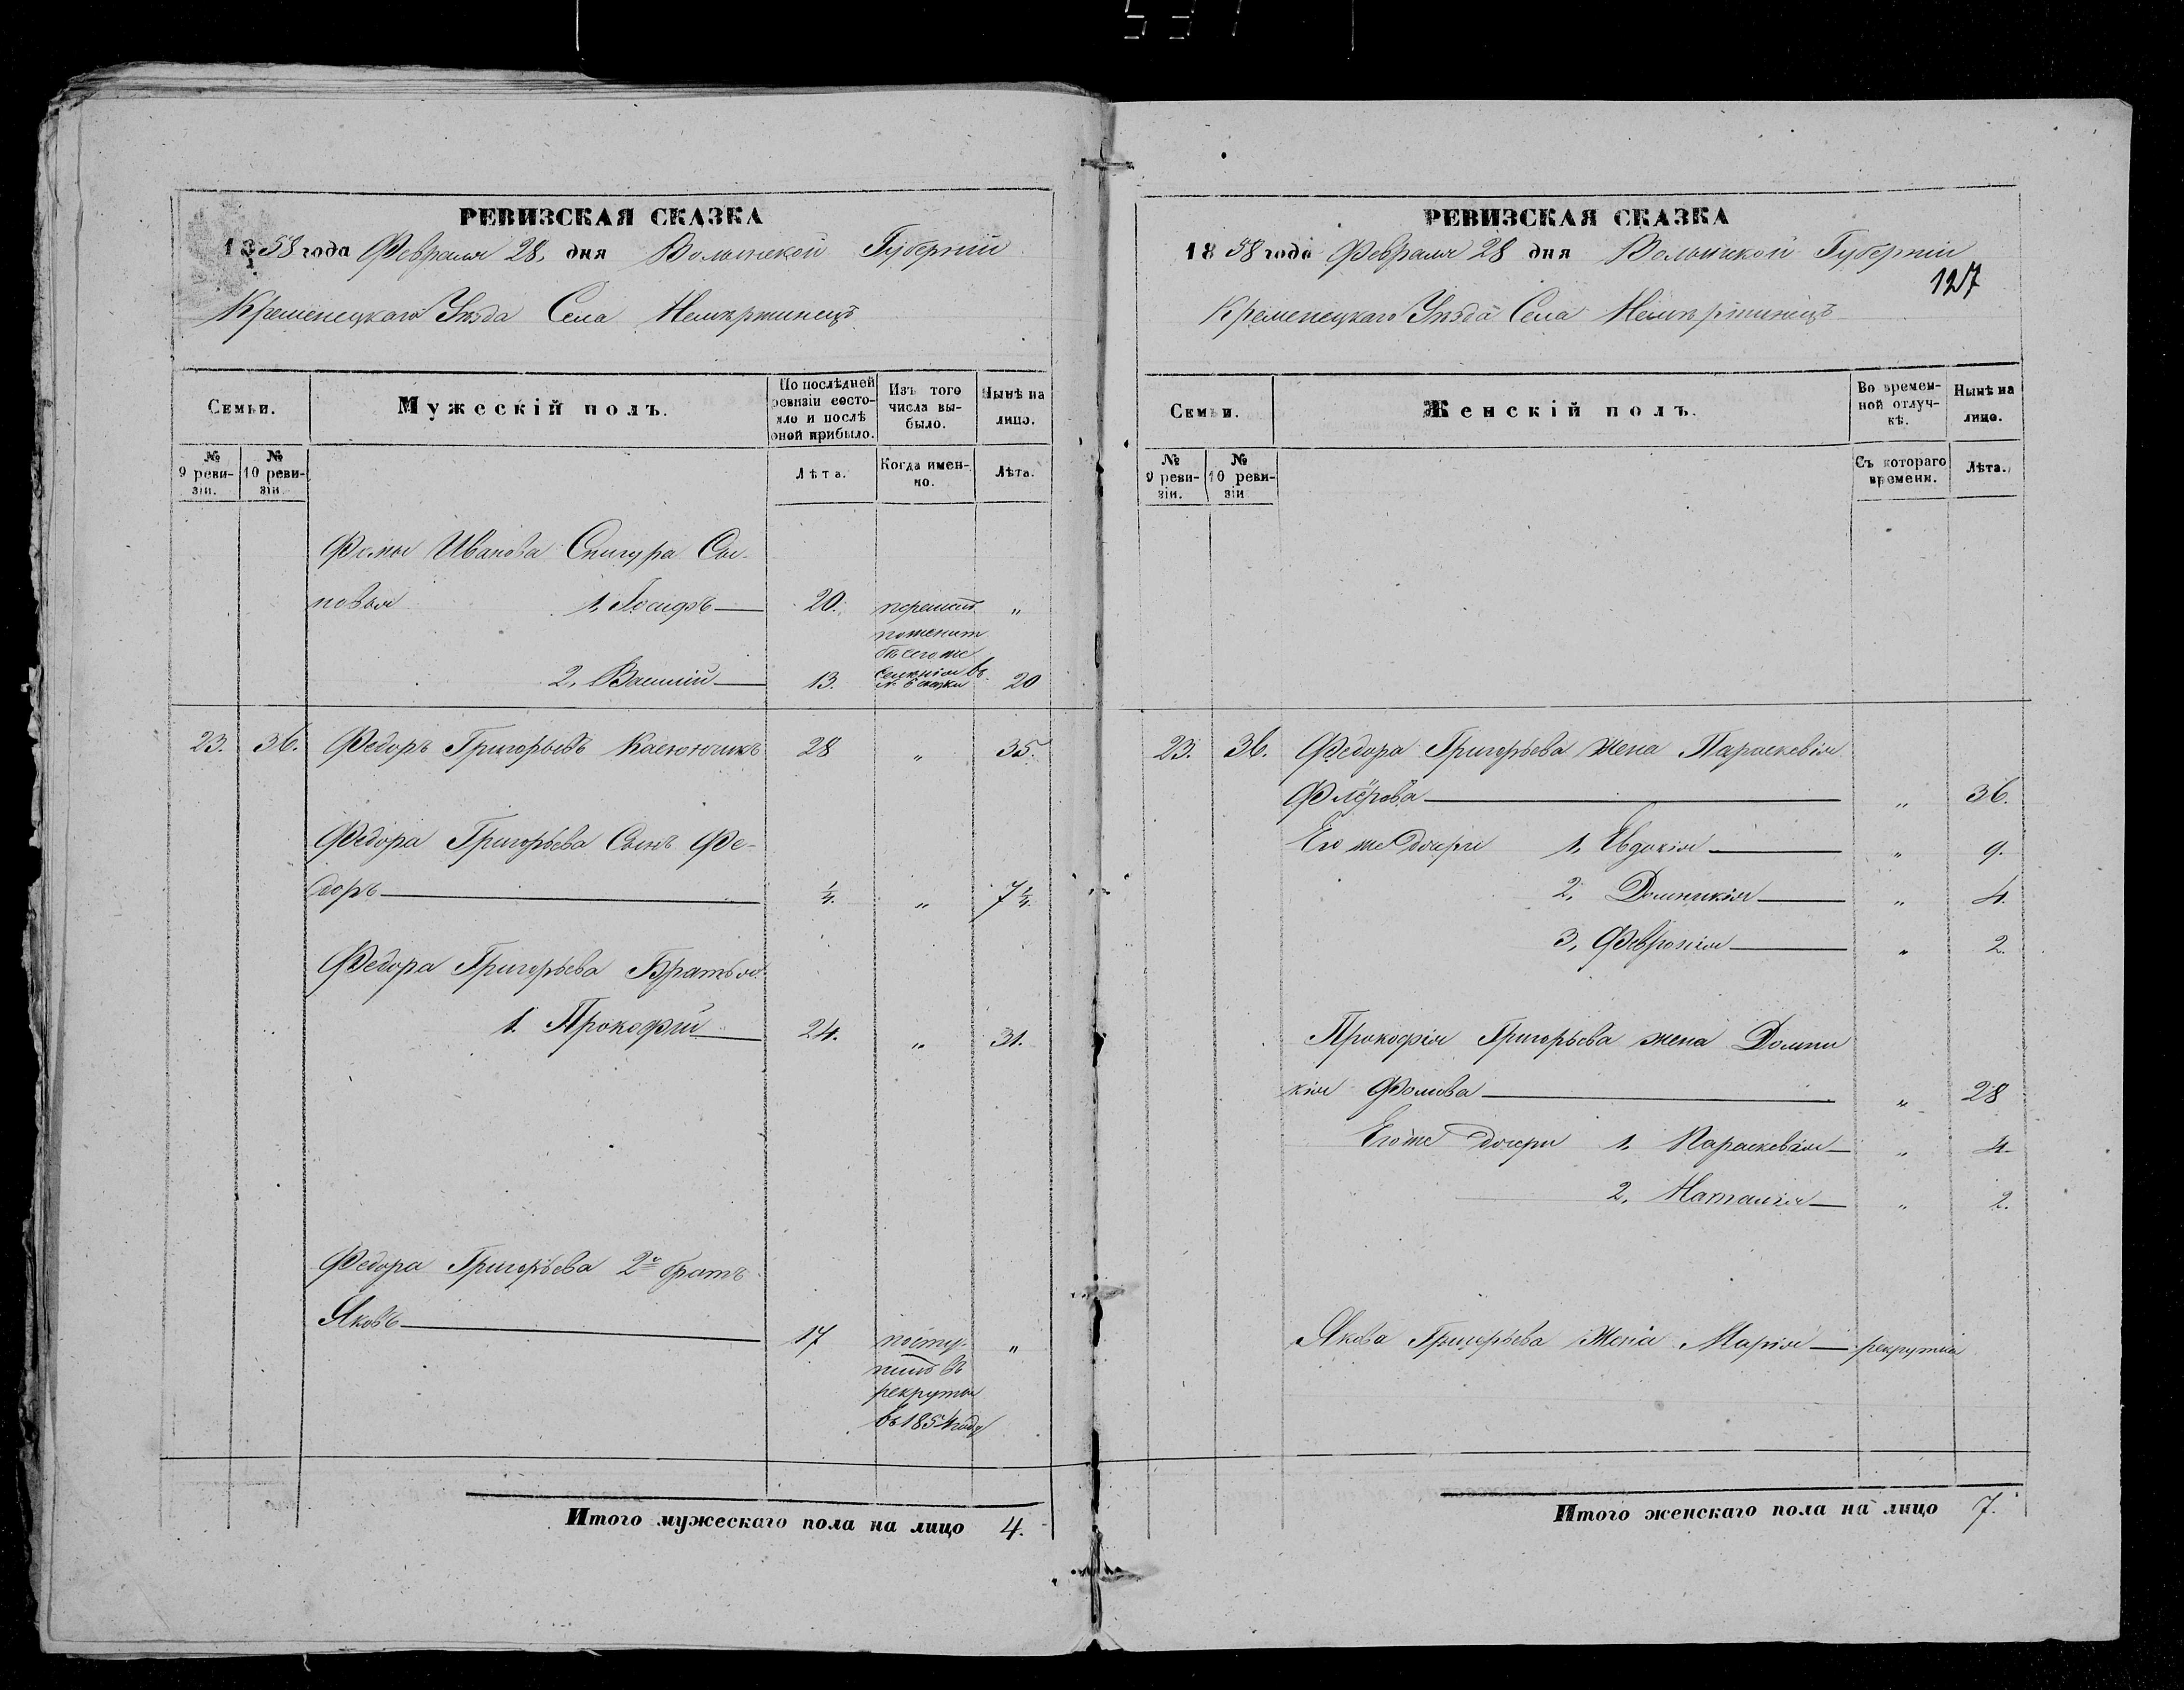 537
РЕВИЗСКАЯ СКАЗКА
1858 года Февраля 28, дня Волынской Губерніи
Кременецкаго Уѣзда Села
Семьи.
Мужескій полъ.
По послѣдней ревизіи состояло и послѣ оной прибыло.
Изъ того числа выбыло.
Нынѣ на лицо.
№ 9 ревизіи.
№ 10 ревизіи
Лѣта.
Когда именно.
Лѣта.
Фомы Иванова Снигура Сы-
новья 1, Іосифъ 20. „
2, Василій 13. 20
23. 36. Федоръ Григорьевъ 28 „ 35.
Федора Григорьева Сынъ Фе-
доръ ¼. „ 7¼.
Федора Григорьева Братья
1. Прокофій 24. „ 31.
Федора Григорьева 2й братъ
Яковъ 17 посту- „
пилъ въ
рекруты
въ 1854 году
Итого мужескаго пола на лицо 4.
РЕВИЗСКАЯ СКАЗКА
1858 года Февраля 28 дня Волынской Губерніи
127
Кременецкаго Уѣзда Села
Семьи.
Женскій полъ.
Во временной отлучкѣ.
Нынѣ на лицо.
№ 9 ревизіи.
№ 10 ревизіи
Съ котораго времени.
Лѣта.
23. 36. Федора Григорьева жена Параскевія
„ 36.
Его же дочери 1, Евдокія „ 9.
2, Домникія „ 4.
3, Февронія „ 2.
Прокофія Григорьева жена Домни
кія Фомова „ 28
Его же дочери 1, Параскевія „ 4.
2, Наталія „ 2.
Якова Григорьева жена Марія рекрутка
Итого женскаго пола на лицо 7.